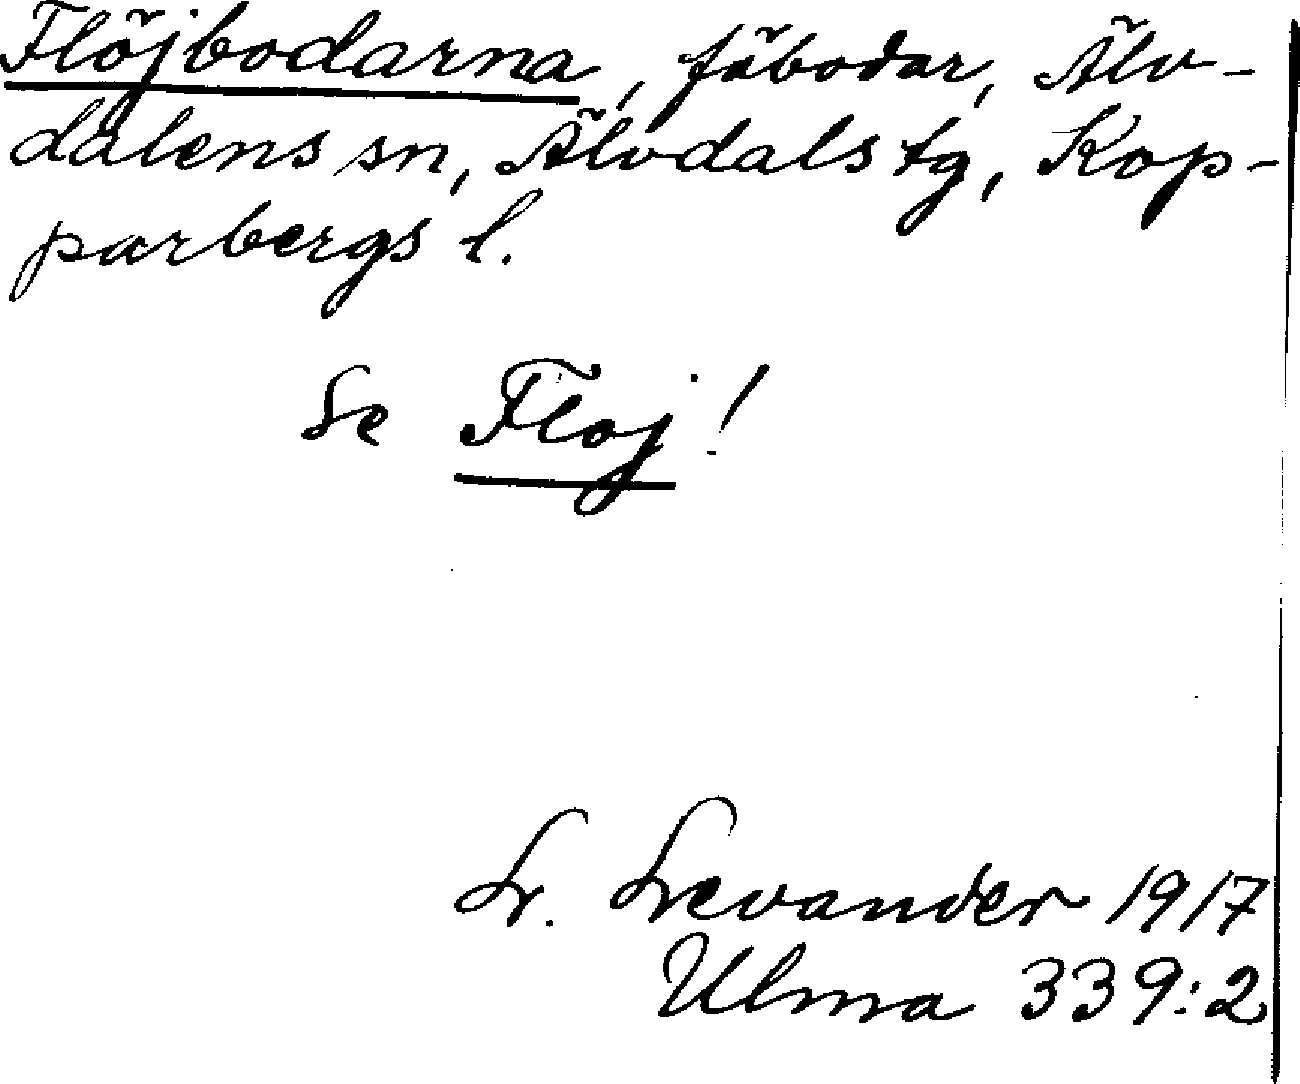 Flöjbodarna, fäbodar, Älv-
dalens sn, Älvdals tg, Kop-
parbergs l.
Se Floj!
L. Levander 1917
Ulma 339:2